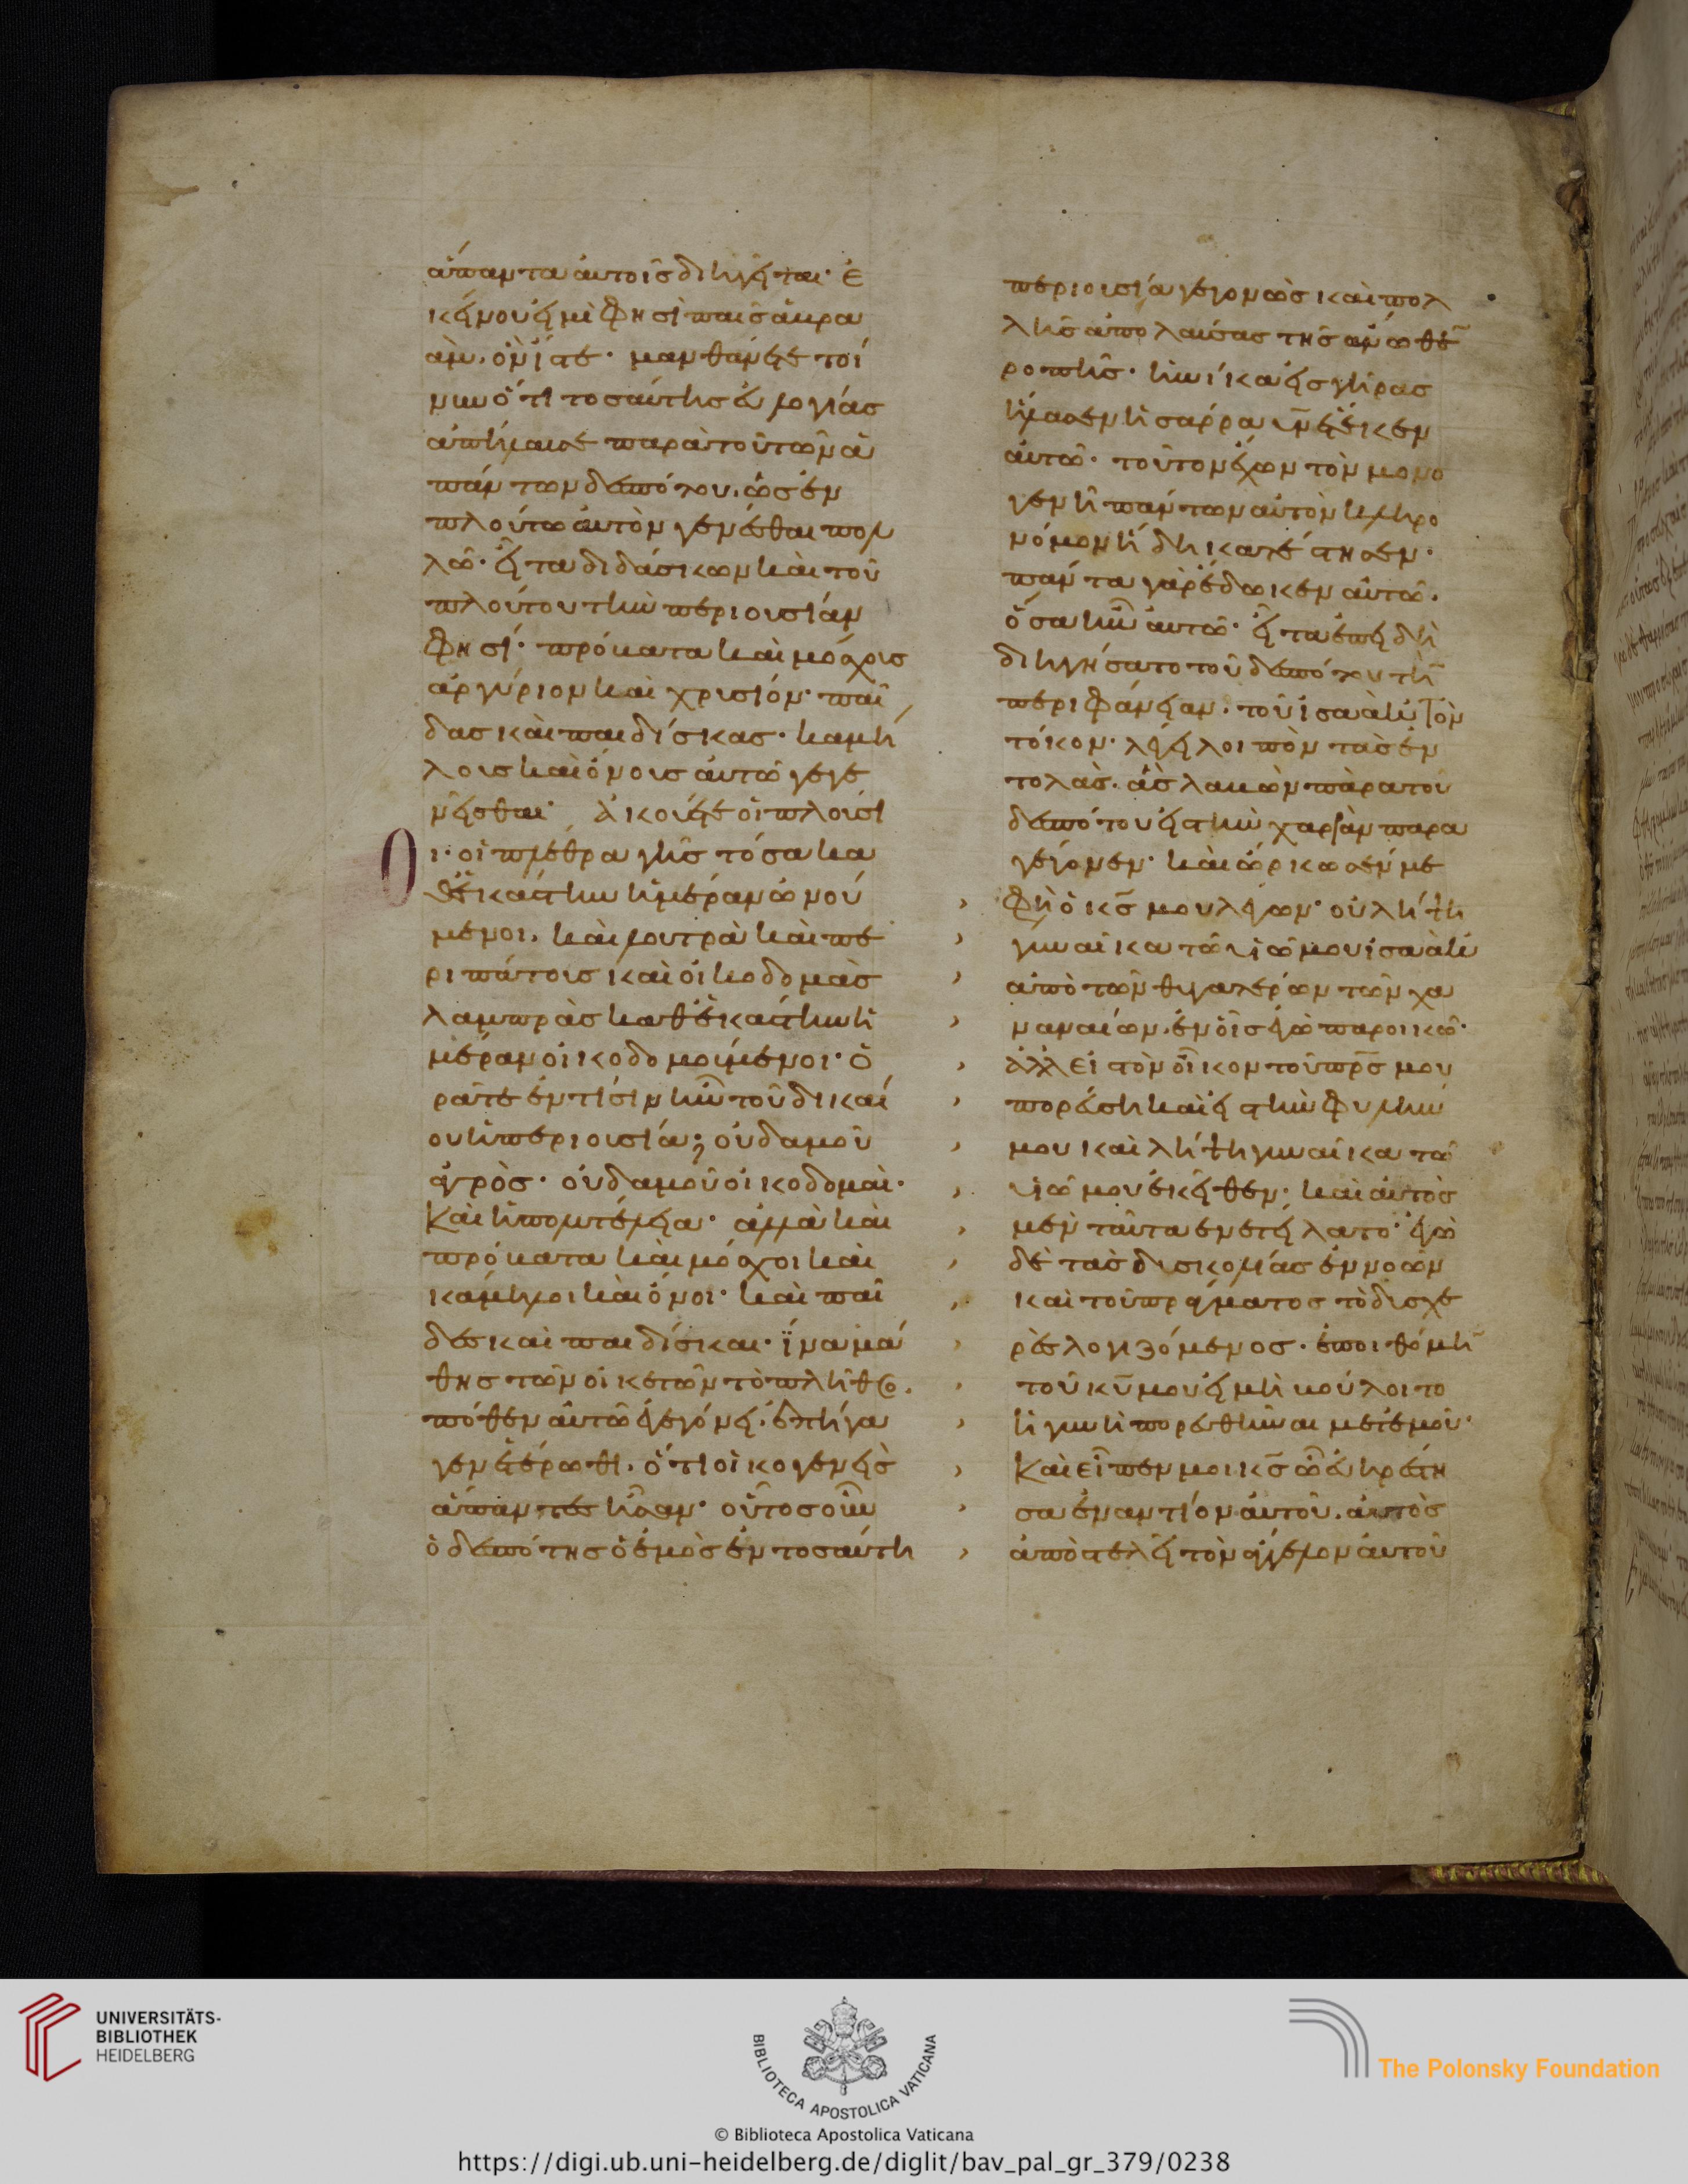 ἅπαντα αὐτοῖς διηγεῖται· ἐ
κείνου εἰμὶ φησὶ παῖς ἄβρα
ὰμ, ὃν ἴστε· μανθάνετε τοί
νυν ὅτι τοσαύτης εὐλογίας
ἀπήλαυσε παρὰ τοῦ τῶν ἁ
πάντων δεσπότου, ὡς ἐν
πλούτω αὐτὸν γενέσθαι πολ
λῶ· εἶτα διδάσκων καὶ τοῦ
πλούτου τὴν περιουσίαν
φησί· πρόβατα καὶ μόσχους
ἀργύριον καὶ χρυσίον· παῖ
δας καὶ παιδίσκας· καμή
λους καὶ ὄνους αὐτῶ γεγε
νεῖσθαι· ἀκούετε οἱ πλούσι
οι· οἱ πλέθρα γῆς τόσα κα
θἑκάστην ἡμέραν ὠνού
μενοι, καὶ λουτρὰ καὶ πε
ριπάτους καὶ οἰκοδομὰς
λαμπρὰς καθἑκάστην ἡ
μέραν οἰκοδομούμενοι· ὁ
ρᾶτε ἐν τίσιν ἦν τοῦ δικαί
ου ἡ περιουσία; οὐδαμοῦ
ἀγρὸς· οὐδαμοῦ οἰκοδομαὶ·
Καὶ ἡ πολυτέλεια· ἀλλὰ καὶ
πρόβατα καὶ μόσχοι καὶ
κάμηλοι καὶ ὄνοι· καὶ παῖ
δες καὶ παιδίσκαι· ἵνα μά
θης τῶν οἰκετῶν τὸ πλῆθος.
πόθεν αὐτῶ ἐγεγόνει. ἐπήγα
γεν ἑτέρωθι. ὅτι οἰκογενεὶς
ἅπαντες ἦσαν· οὗτος οὖν
ὁ δεσπότης ὁ ἐμὸς ἐν τοσαύτη
περιουσία γεγονὼς καὶ πολ
λῆς ἀπολαύσας τῆς ἄνωθεν
ροπῆς· ἡνίκα εἰς γήρας
ἤλασεν ἡ σάρρα υν̅ ἔτεκεν
αὐτῶ· τοῦτον ἔχων τὸν μονο
γενῆ πάντων αὐτὸν κληρο
νόμον ἤδη κατέστησεν·
πάντα γὰρ ἔδωκεν αὐτῶ.
ὅσα ἦν αὐτῶ· εἶτα ἐπειδὴ
διηγήσατο τοῦ δεσπότου τὴν
περιφάνειαν. τοῦ ἰσαὰκ τὸν
τόκον· λέγει λοιπὸν τὰς ἐν
τολὰς. ἃς λαβὼν παρα τοῦ
δεσπότου εἰς τὴν χαρρὰν παρα
γέγονεν· καὶ ὥρκωσέν με
φη ὁ κς̅ μου λέγων· οὐ λήψη
γυναῖκα τῶ υἱῶ μου ἰσαὰκ
ἀπὸ τῶν θυγατέρων τῶν χα
ναναίων. ἐν οἷς ἐγὼ παροικῶ·
ἀλλ εἰς τὸν οἶκον τοῦ πρς̅ μου
πορεύση καὶ εἰς τὴν φυλὴν
μου καὶ λήψη γυναῖκα τῶ
υἱῶ μου ἐκεῖθεν· καὶ αὐτὸς
μὲν ταῦτα ἐνετείλατο· ἐγὼ
δὲ τὰς δυσκολίας ἐννοῶν
καὶ τοῦ πράγματος τὸ δυσχε
ρὲς λογιζόμενος. ἐπυθόμην
τοῦ κυ̅ μου εἰ μὴ βούλοιτο
ἡ γυνὴ πορευθῆναι μετ ἐμοῦ·
Καὶ εἶπεν μοι κς̅ ὧ εὐηρέστη
σα ἐναντίον αὐτοῦ. αὐτὸς
ἀποστελεῖ τὸν ἄγγελον αὐτοῦ
UNIVERSITÄTS-
BIBLIOTHEK
HEIDELBERG
BIBLIOTECA APOSTOLICA VATICANA
The Polonsky Foundation
© Biblioteca Apostolica Vaticana
https://digi.ub.uni-heidelberg.de/diglit/bav_pal_gr_379/0238